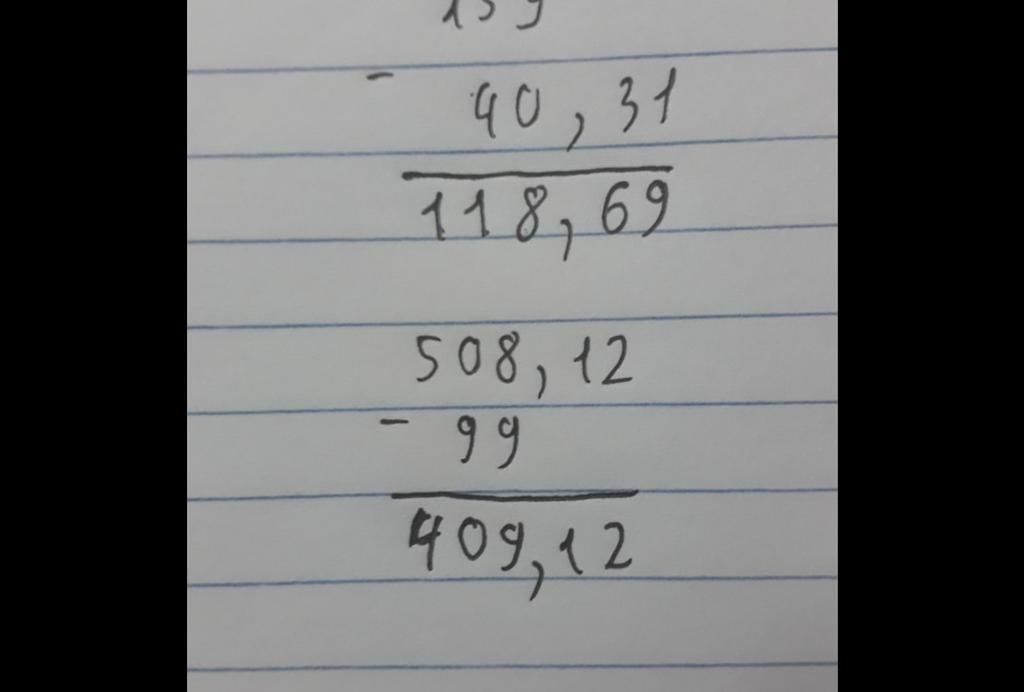 159
- 40,31
118,69
508,12
- 99
409,12